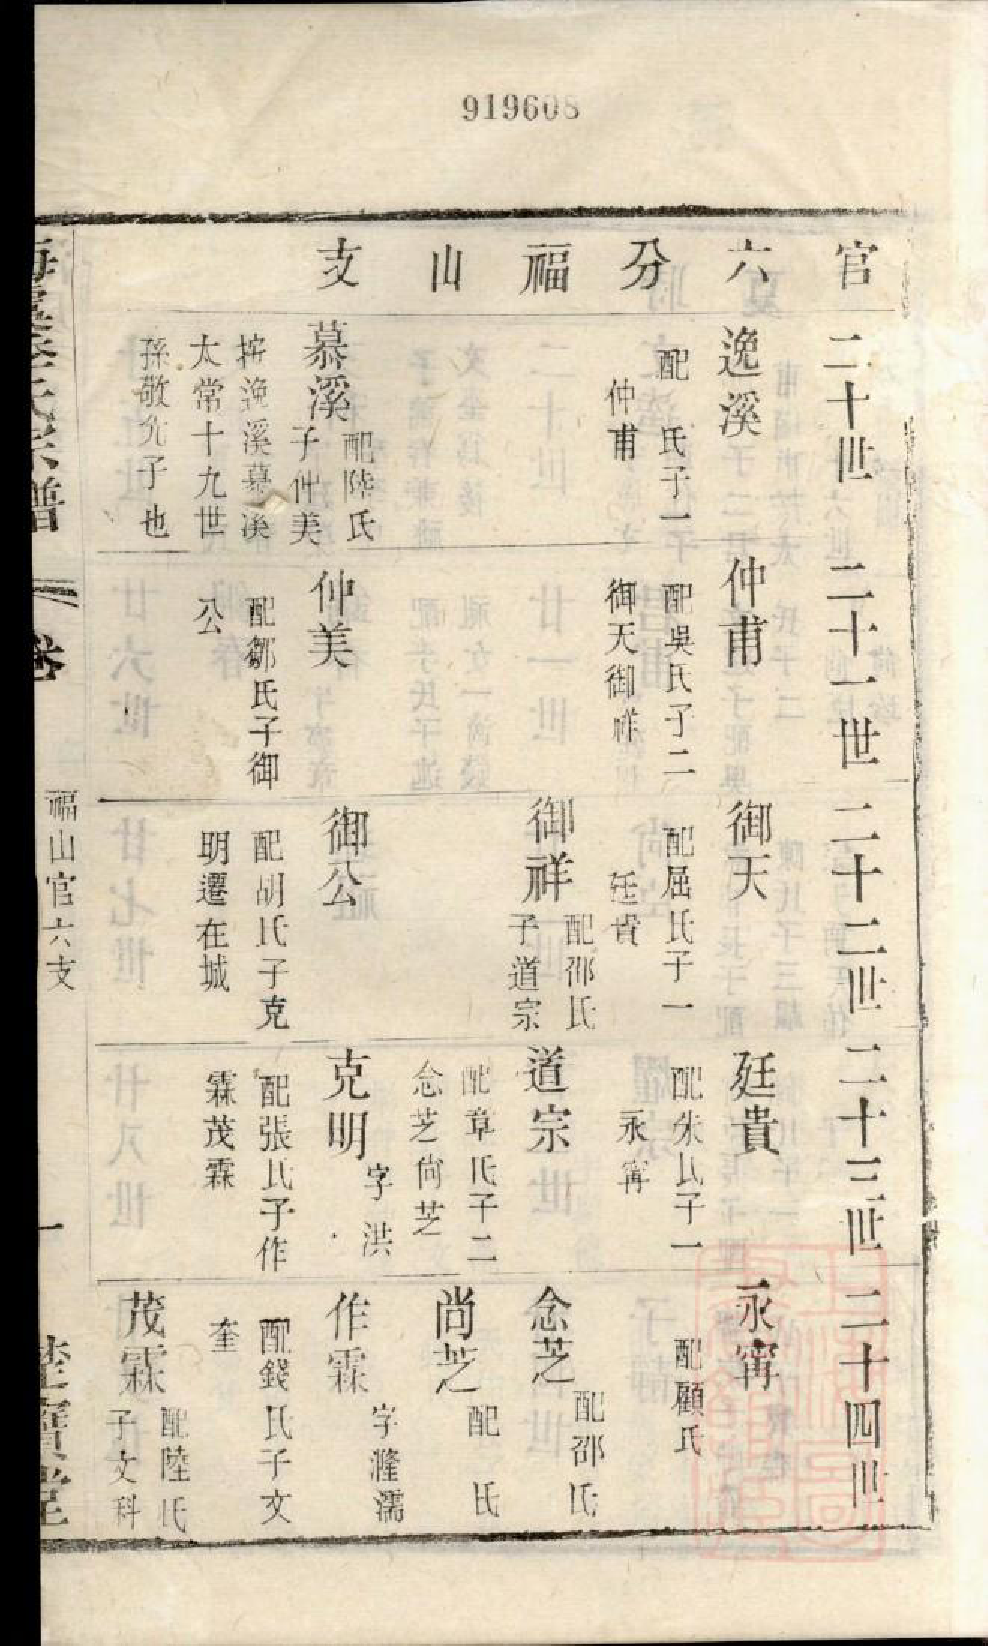 919608
官六分福山支
二十世
二十一世
二十二世
二十三世
二十四世
逸溪
配 氏子一
仲甫
慕溪
配陸氏
子仲美
按逸溪慕溪
太常十九世
孫敬先子也
仲甫
配吳氏子二
御天御祥
仲美
配鄒氏子御
公
御天
配屈氏子一
廷貴
御祥
配邵氏
子道宗
御公
配胡氏子克
明遷在城
廷貴
配朱氏子一
永甯
道宗
配章氏子二
念芝尚芝
克明
字洪
配張氏子作
霖茂霖
永甯
配顧氏
念芝
配邵氏
尚芝
配 氏
作霖
字漋濡
配錢氏子文
奎
茂霖
配陸氏
子文科
氏宗譜
卷
福山官六支
一
寶堂